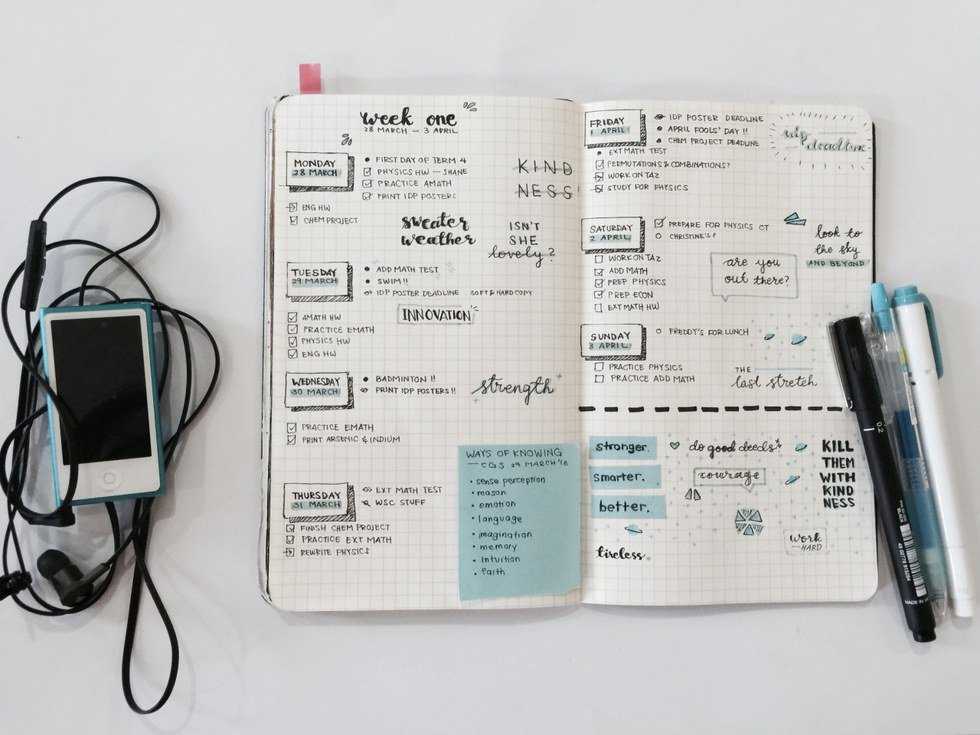 week one
28 MARCH — 3 APRIL
MONDAY
28 MARCH
FIRST DAY OF TERM 4
PHYSICS HW — SHANE
PRACTICE AMATH
PRINT IDP POSTERS
ENG HW
CHEM PROJECT
KIND
NESS
sweater
weather
ISN'T
SHE
lovely?
TUESDAY
29 MARCH
ADD MATH TEST
SWIM!!
IDP POSTER DEADLINE SOFT & HARD COPY
INNOVATION
AMATH HW
PRACTICE EMATH
PHYSICS HW
ENG HW
WEDNESDAY
30 MARCH
BADMINTON !!
PRINT IDP POSTERS !!
strength
PRACTICE EMATH
PRINT ARSENIC & INDIUM
THURSDAY
31 MARCH
EXT MATH TEST
WSC STUFF
FINISH CHEM PROJECT
PRACTICE EXT MATH
REWRITE PHYSICS
WAYS OF KNOWING
— CGS 29 MARCH '16
sense perception
reason
emotion
language
imagination
memory
intuition
faith
FRIDAY
1 APRIL
IDP POSTER DEADLINE
APRIL FOOLS' DAY !!
CHEM PROJECT DEADLINE
EXT MATH TEST
PERMUTATIONS & COMBINATIONS?
WORK ON TAZ
STUDY FOR PHYSICS
idp
deadline
SATURDAY
2 APRIL
PREPARE FOR PHYSICS CT
CHRISTINE'S?
WORK ON TAZ
ADD MATH
PREP PHYSICS
PREP ECON
EXT MATH HW
are you
out there?
look to
the sky
AND BEYOND
SUNDAY
3 APRIL
FREDDY'S FOR LUNCH
PRACTICE PHYSICS
PRACTICE ADD MATH
THE
last stretch
stronger.
smarter.
better.
tireless.
do good deeds
courage
work
—HARD
KILL
THEM
WITH
KIND
NESS
0.2